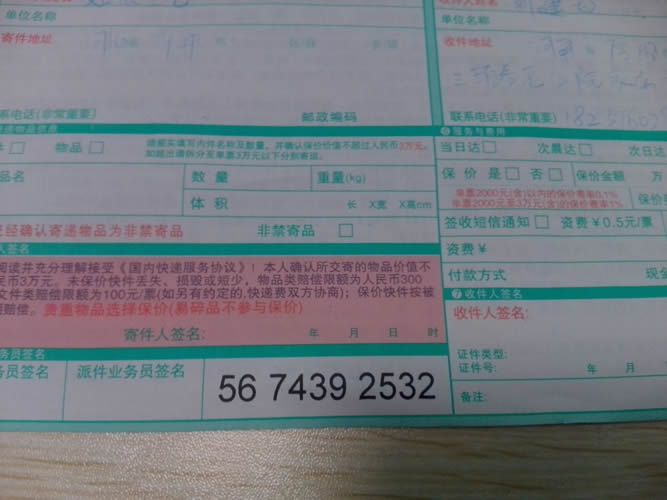 单位名称
单位名称
寄件地址
收件地址
联系电话(非常重要)
邮政编码
联系电话(非常重要)
服务与费用
物品
请据实填写内件名称及数量，并确认保价价值不超过人民币3万元。
如超出请拆分至单票3万元以下分别寄运。
当日达
次晨达
次日达
品名
数 量
重量(kg)
保 价 是
否
保价金额
万
体 积
长 X宽 X高cm
单票2000元(含)以内的保价费率0.1%
单票2000元至3万元(含)的保价费率1%
经确认寄递物品为非禁寄品
非禁寄品
签收短信通知
资费￥0.5元/票
资费￥
人签名
阅读并充分理解接受《国内快递服务协议》！本人确认所交寄的物品价值不
民币3万元。未保价快件丢失、损毁或短少，物品类赔偿限额为人民币300
文件类赔偿限额为100元/票(如另有约定的,快递费双方协商)；保价快件按被
赔偿。贵重物品选择保价(易碎品不参与保价)
付款方式
现金
❼收件人签名
收件人签名:
寄件人签名:
年 月 日 时
务员签名
证件类型:
证件号:
年 月
务员签名
派件业务员签名
56 7439 2532
备注: